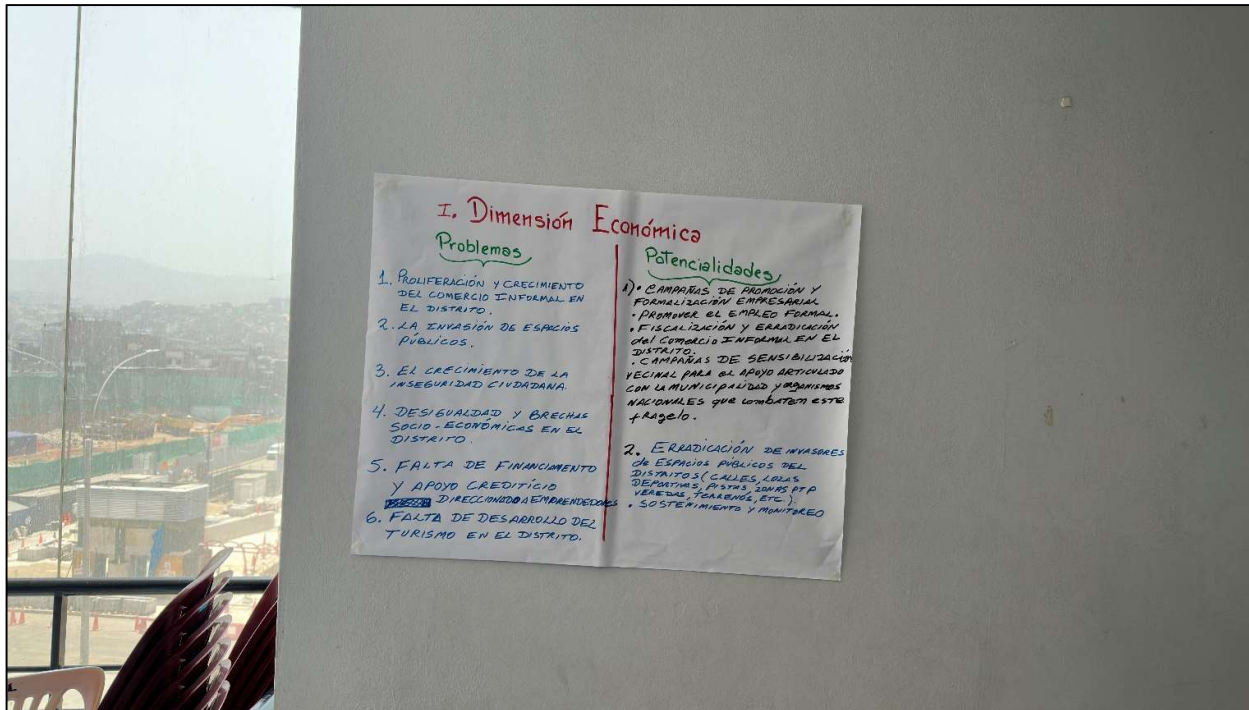 I. Dimensión Económica
Problemas
1. PROLIFERACIÓN Y CRECIMIENTO
DEL COMERCIO INFORMAL EN
EL DISTRITO.
2. LA INVASIÓN DE ESPACIOS
PÚBLICOS.
3. EL CRECIMIENTO DE LA
INSEGURIDAD CIUDADANA.
4. DESIGUALDAD Y BRECHAS
SOCIO-ECONÓMICAS EN EL
DISTRITO.
5. FALTA DE FINANCIAMENTO
Y APOYO CREDITICIO
DIRECCIONADO A EMPRENDEDORES
6. FALTA DE DESARROLLO DEL
TURISMO EN EL DISTRITO.
Potencialidades
1) • CAMPAÑAS DE PROMOCIÓN Y
FORMALIZACIÓN EMPRESARIAL
• PROMOVER EL EMPLEO FORMAL.
• FISCALIZACIÓN Y ERRADICACIÓN
del COMERCIO INFORMAL EN EL
DISTRITO.
• CAMPAÑAS DE SENSIBILIZACIÓN
VECINAL PARA EL APOYO ARTICULADO
CON LA MUNICIPALIDAD Y organismos
NACIONALES que combaten este
fragelo.
2. ERRADICACIÓN DE INVASORES
de ESPACIOS PÚBLICOS DEL
DISTRITOS (CALLES, LOZAS
DEPORTIVAS, PISTAS, ZONAS PTP
VEREDAS, TERRENOS, ETC)
• SOSTENIMIENTO Y MONITOREO